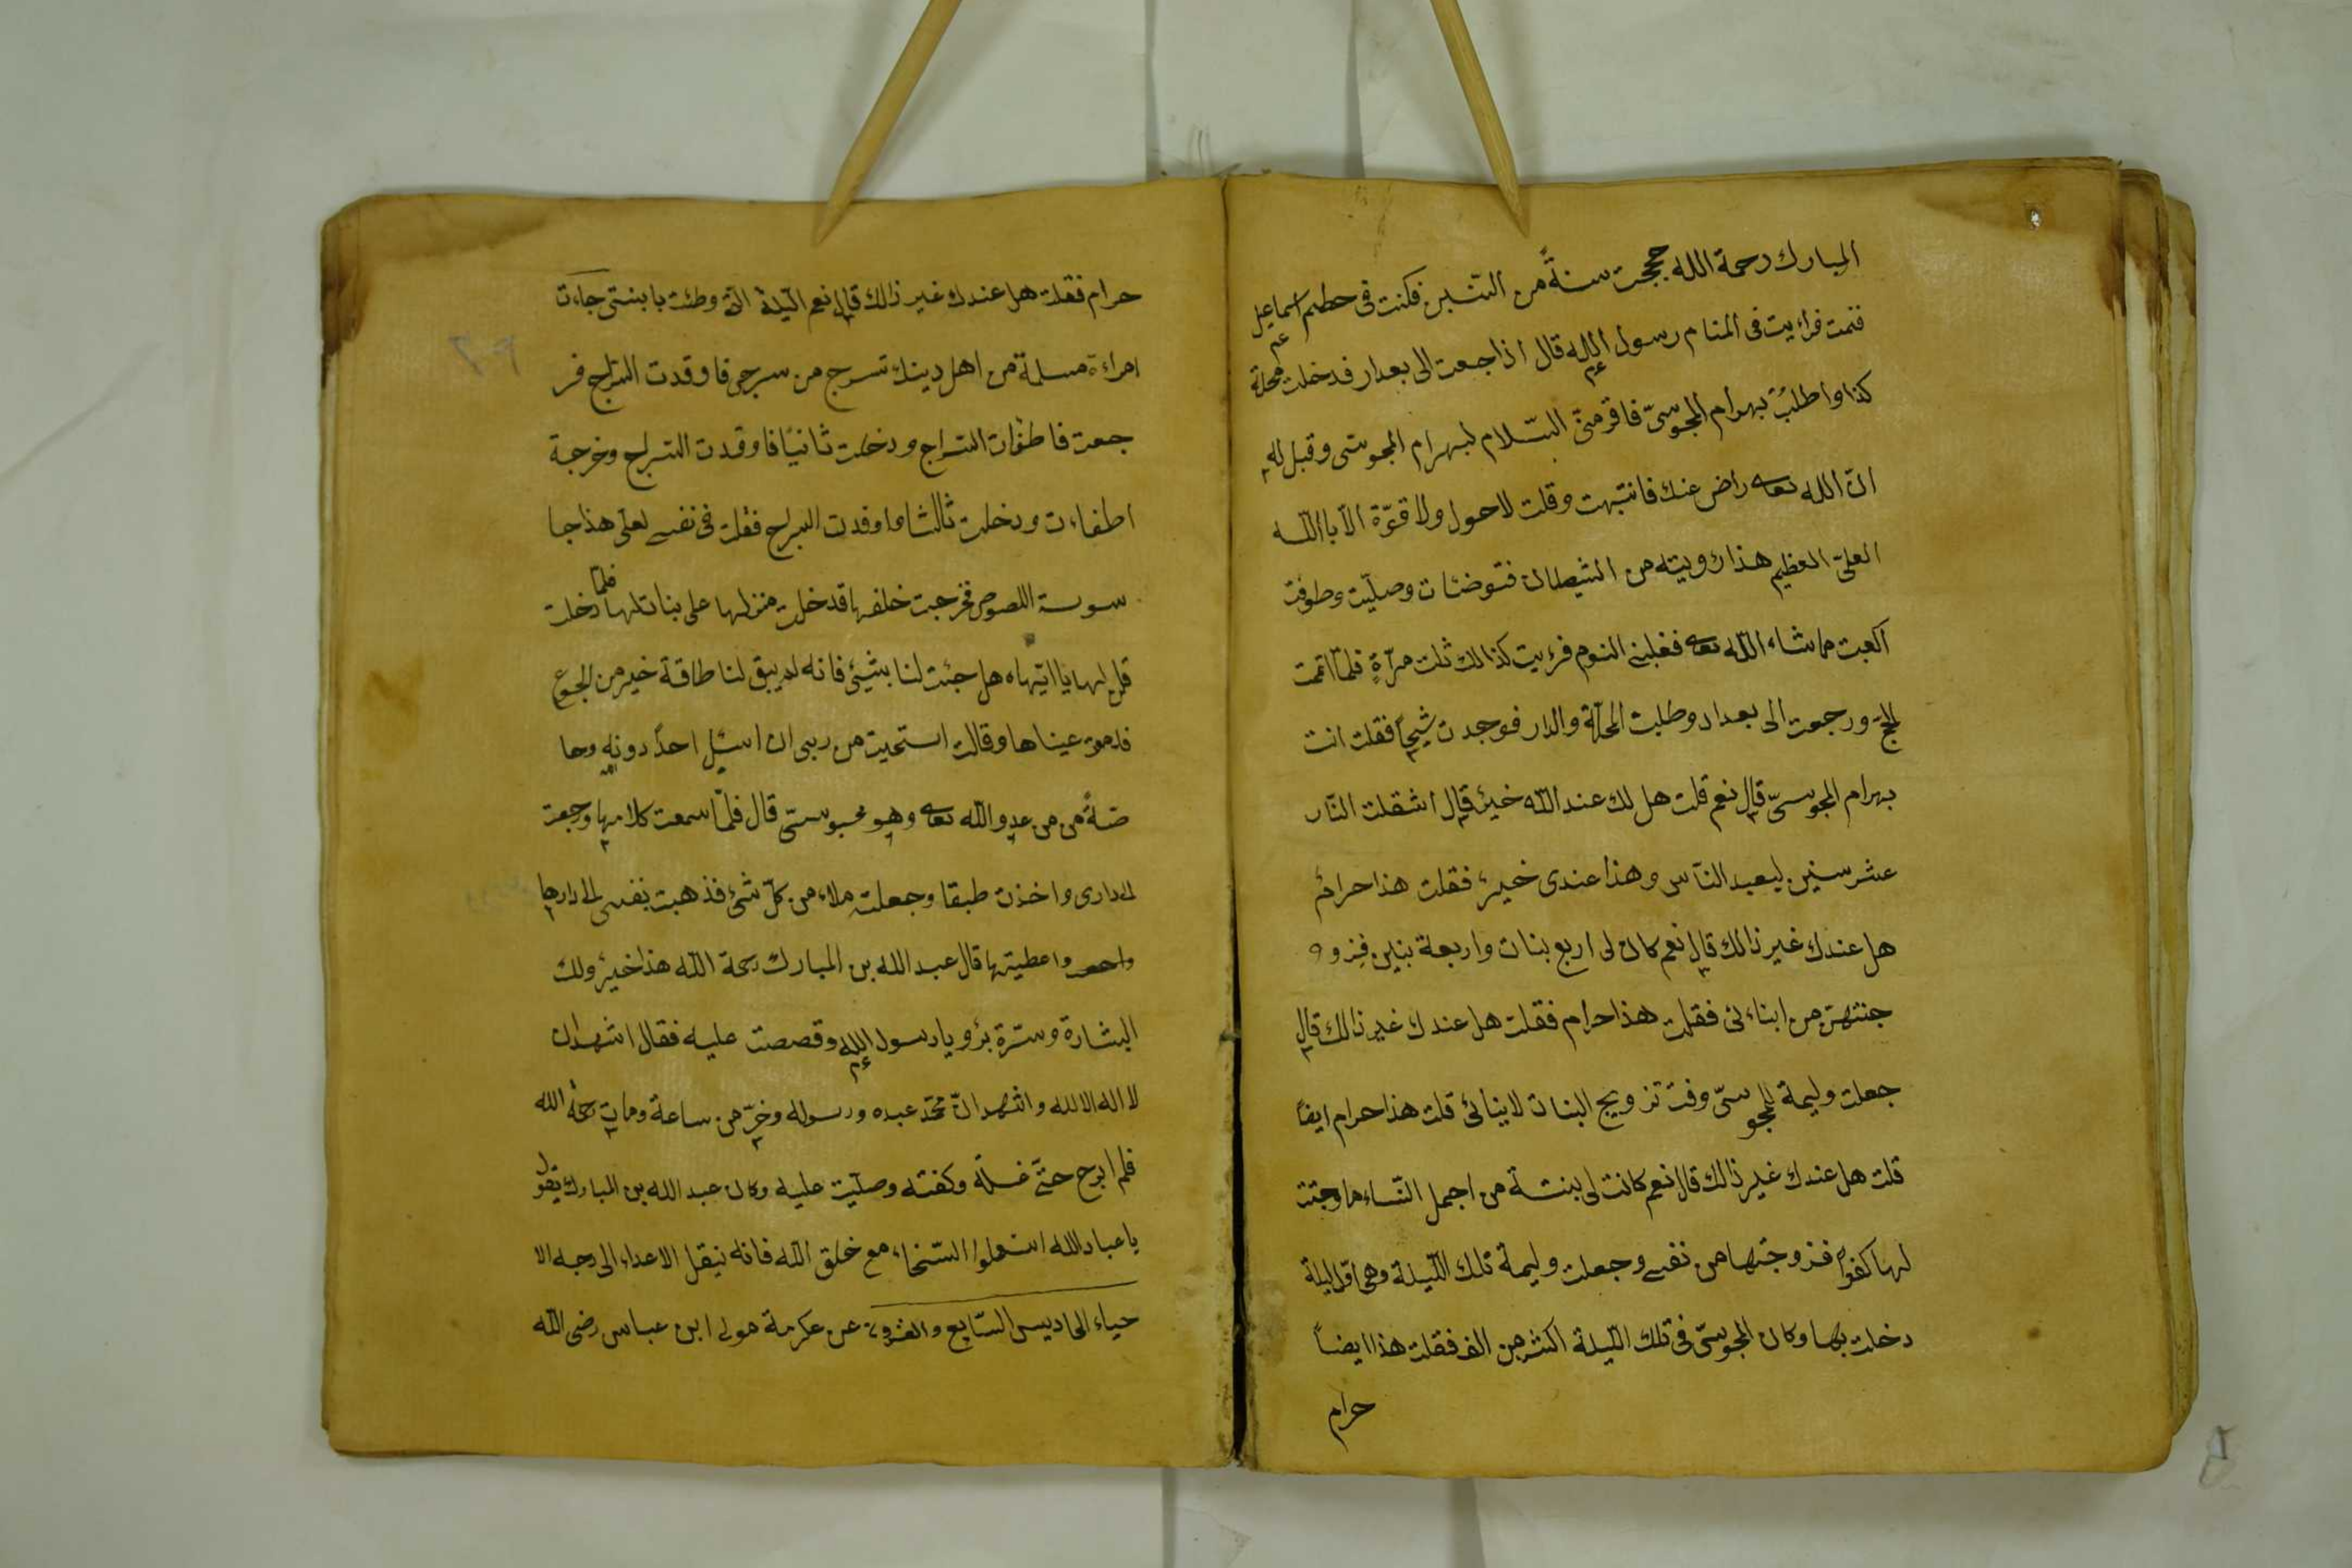 المبارك رحمة الله حججت سنةً من السّنين فكنت فى حطيم اسماعيل
فنمت فراءيت فى المنام رسول الله قال اذا جعت الى بعدار فدخلت محلة
كذا واطلبُ بهرام المجوسىّ فاقر منىّ السّلام لبهرام المجوسّى وقبل له
انّ الله تعا راض عنك فانتبهت وقلت لاحول ولا قوّة الاّ باالله
العلىّ العظيم هذا رويته من الشيطان فتوضئات وصلّيت وطوفت
اكعبت ماشاء اللّه تعا فغلبنى النوم فرءيت كذالك ثلث مرآةٍ فلمّا اتمت
الحجّ ورجعت الى بعداد وطلبت المحلّة والدار فوجدت شيخاً فقلت انت
بهرام المجوسىّ قال نعم قلت هل لك عند اللّه خيرٌ قال اشقلت النّار
عشر سنين ليعبد النّاس وهذا عندى خيرٌ فقلت هذا حرامٌ
هل عندك غير ذالك قال نعم كان لى اربع بنات واربعة بنين فزو
جنتهنّ من ابناءئى فقلت هذا حرام فقلت هل عندك غير ذالك قال
جعلت وليمة للمجوسىّ وقت تزويج البنات لابنائى قلت هذا حرام ايضاً
قلت هل عندك غير ذالك قال نعم كانت لى بنتة من اجمل النّساء ما وجتت
لها كفواً فزوجتها من نفسى وجعلت وليمة تلك اللّيلة وهى اوّل ليلة
دخلت بها وكان المجوسّى فى تلك اللّيلة اكثر من الف فقلت هذا ايضاً
حرام
حرام فقلت هل عندك غير ذالك قال نعم اللّيلة الّتى وطئت بابنتى جاءت
امراءة مسلمة من اهل دينك تسرج من سرجى فاوقدت السّراج فر
جعت فاطفٔات السّراج ودخلت ثانيًا فاوقدت السّراج وخرجة
اطفاءت ودخلت ثالثا واوقدت السراج فقلت فى نفسى لعلّى هذا جا
سوسة اللصوص فخرجت خلفها قد خلت منزلها على بناتلها فلمّا دخلت
قلن لها يا اتيهاه هل جئت لنا بشيئى فانه لم يبق لنا طاقة خير من الجوع
فدمعت عيناها وقالت استحيت من ربى ان اسئل احدً دونه وحا
صّةً من من عدو اللّه تعا وهو محبوسىّ قال فلمّا سمعت كلامها وجعت
الى دارى واخذت طبقا وجعلت ملاء من كلّ شئ فذهبت بنفسى الى دارها
واعطيتها قال عبد الله بن المبارك رحمة اللّه هذا خيرٌ ولك
البشارة وسّرة برٔويا رسول الله وقصصت عليه فقال اشهدان
لا اله الا الله واشهد انّ محمّد عبده ورسوله وخرّ من ساعة ومات رحمة الله
فلم ابرح حتّى غسلة وكفنته وصلّيت عليه وكان عبد الله بن المبارك يقول
يا عباد الله استعملوا السّخاء مع خلق اللّه فانه ينقل الاعداء الى درجه الا
حياء الحاديس السّابع والعشرون عن عكرمة مولى ابن عباس رضى اللّه